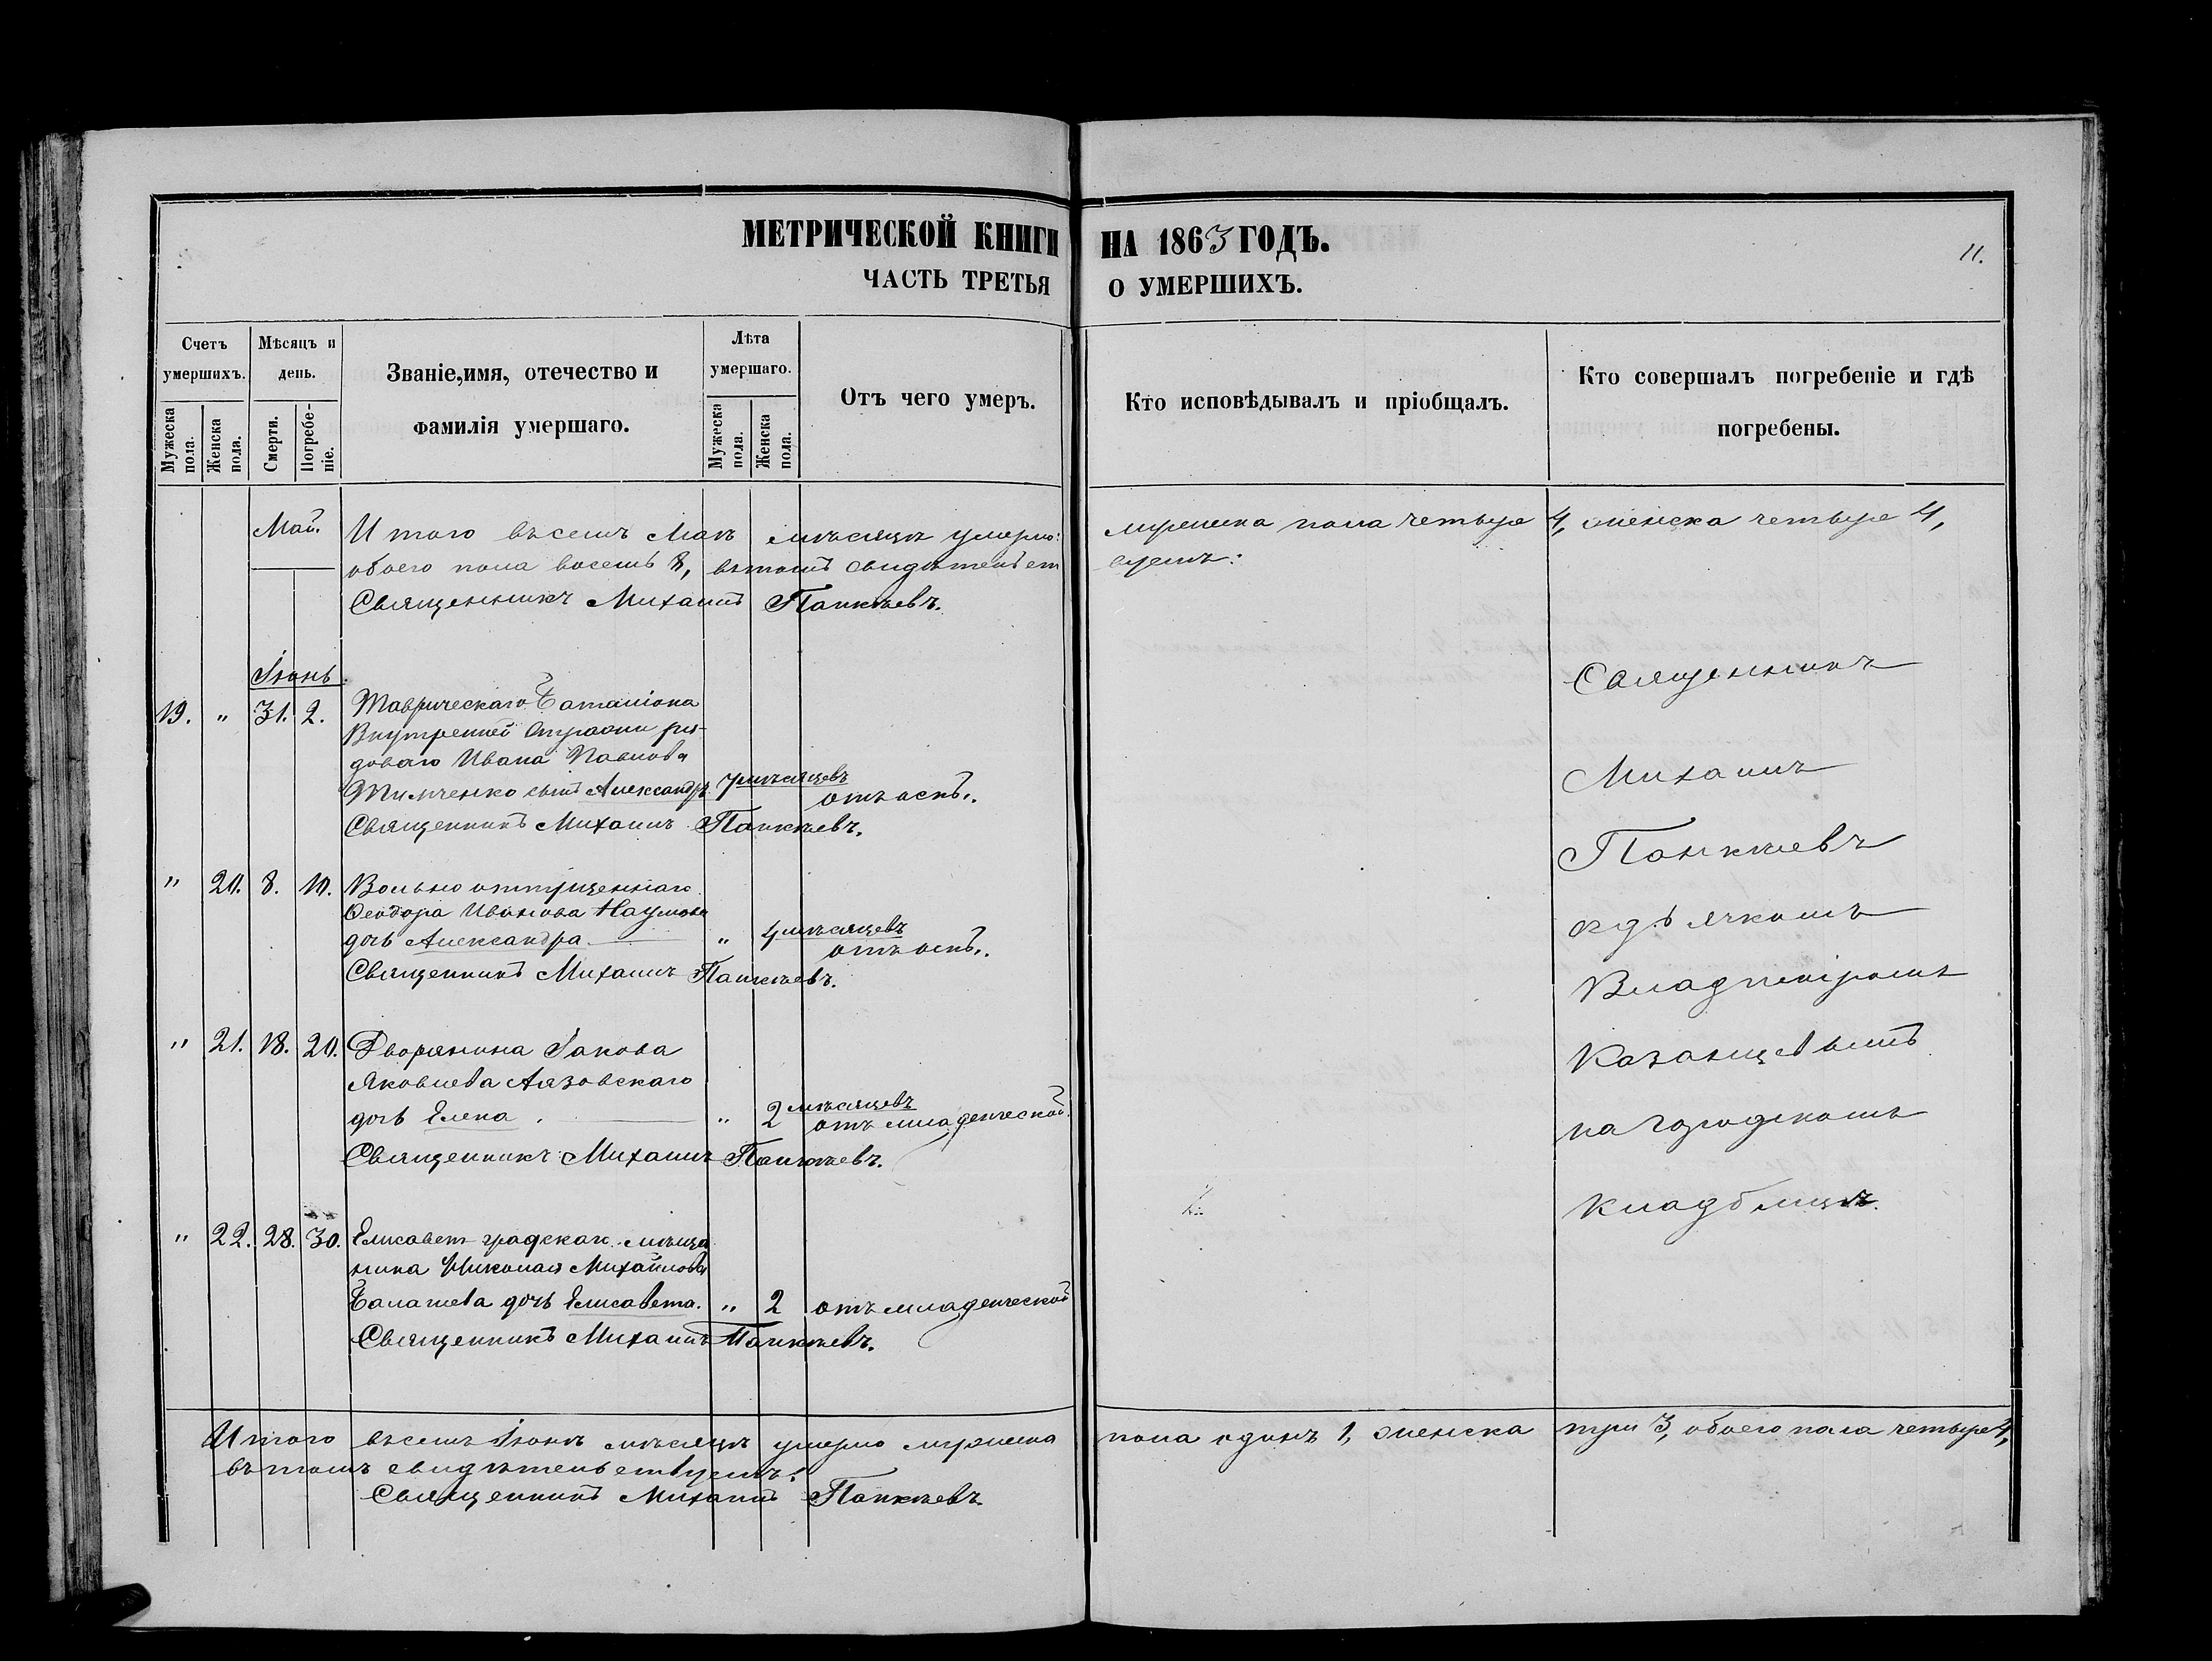 МЕТРИЧЕСКОЙ КНИГИ НА 1863 ГОДЪ.
11.
ЧАСТЬ ТРЕТЬЯ О УМЕРШИХЪ.
Счетъ умершихъ.
Мужеска пола.
Женска пола.
Мѣсяцъ и день.
Смерти.
Погребеніе.
Званіе,имя, отечество и
фамилія умершаго.
Лѣта умершаго.
Мужеска пола.
Женска пола.
Отъ чего умеръ.
Кто исповѣдывалъ и пріобщалъ.
Кто совершалъ погребеніе и гдѣ
погребены.
Май. Итого въ семъ Маѣ мѣсяцѣ умерло: мужеска пола четыре 4, женска четыре 4,
обоего пола восемь 8, въ томъ свидѣтельст вуемъ:
Священникъ Михаилъ
Іюнь.
19. " 31. 2. Таврическаго Баталіона
Внутренней Стражи ря-
доваго Ивана Павлова
Тимченко сынъ Александръ. 7 мѣсяцевъ
отъ оспы.
Священникъ Михаилъ
" 20. 8. 10. Вольно отпущеннаго
Ѳеодора Иванова Наумова
дочь Александра " 4 мѣсяцевъ
отъ оспы.
Священникъ Михаилъ
" 21. 18. 20. Дворянина Іакова
Яковлева
дочь Елена. " 2 мѣсяцевъ
отъ младенческой.
Священникъ Михаилъ
" 22. 28. 30. Елисаветградскаго мѣща
нина Николая Михайлова
Балашева дочь Елисавета. " 2 отъ младенческой
Священникъ Михаилъ
Священникъ
Михаилъ
съ дьячкомъ
Владиміромъ
Казанцевымъ
на городскомъ
кладбищѣ.
Итого въ семъ Іюнѣ мѣсяцѣ умерло мужеска пола одинъ 1, женска три 3, обоего пола четыре 4,
въ томъ свидѣтельствуемъ:
Священникъ Михаилъ